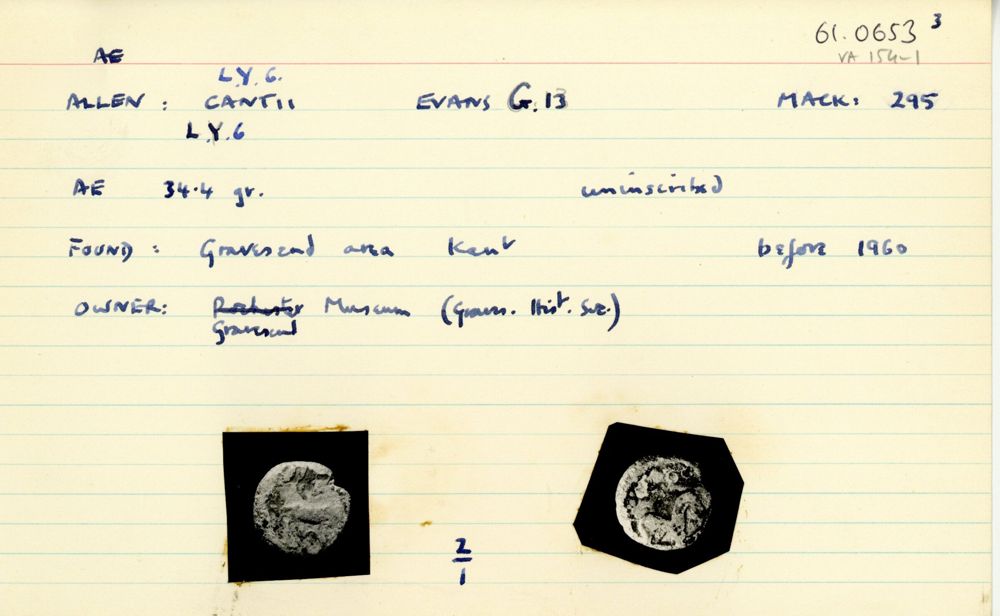 61.0653 3
AE
VA 154-1
L.Y. 6.
ALLEN : CANTII EVANS G.13 MACK: 295
L.Y.6
AE 34.4 gr. uninscribed
FOUND : Gravesend area Kent before 1960
OWNER: Rochester Museum (Graves. Hist. Soc.)
Gravesend
2
1